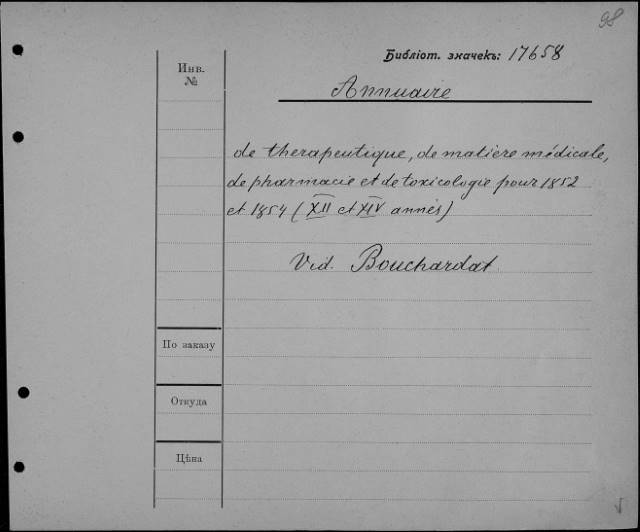 98
Библіот. значекъ: 17658
Инв. №
Annuaire
de therapeutique, de matiere médicale,
de pharmacie et de toxicologie pour 1852
et 1854 (XII et XIV annés)
Vid. Bouchardat
По заказу
Откуда
Цѣна